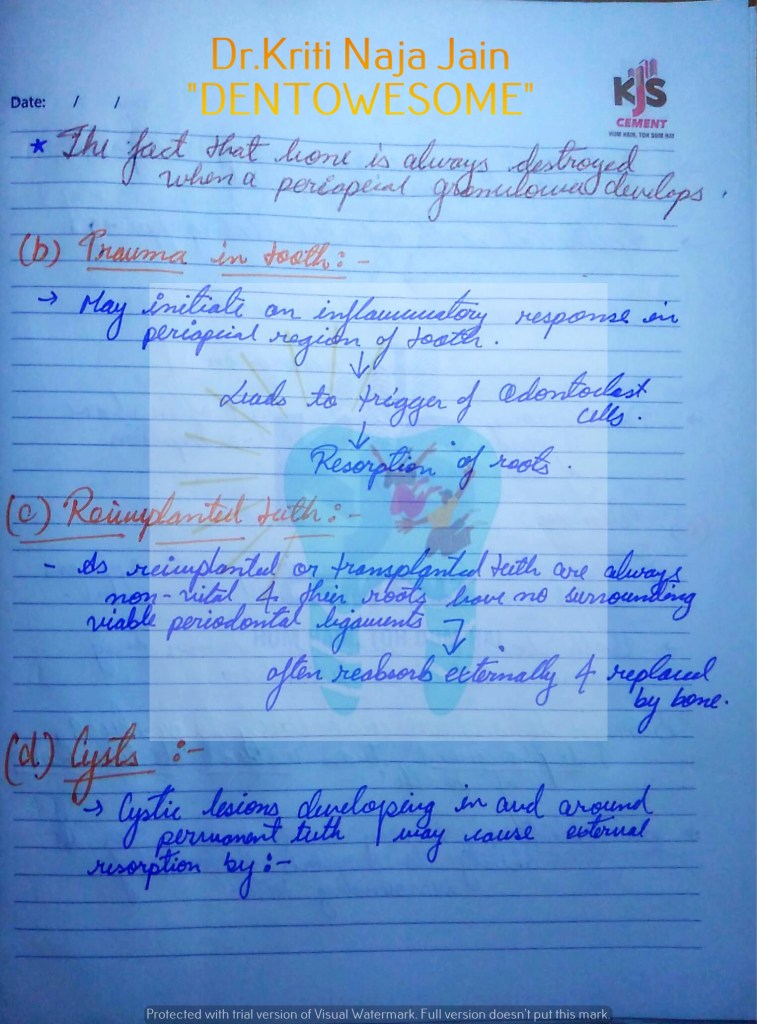 Dr.Kriti Naja Jain
"DENTOWESOME"
Date: / /
KJS
CEMENT
* The fact that bone is always destroyed
when a periapical granuloma develops.
(b) Trauma in tooth:-
→ May initiate an inflammatory response in
periapical region of tooth.
↓
Leads to trigger of Odontoclast
cells.
↓
Resorption of roots.
(c) Reimplanted teeth:-
- As reimplanted or transplanted teeth are always
non-vital & their roots have no surrounding
viable periodontal ligaments
often reabsorb externally & replaced
by bone.
(d) Cysts :-
→ Cystic lesions developing in and around
permanent teeth may cause external
resorption by:-
Protected with trial version of Visual Watermark. Full version doesn't put this mark.